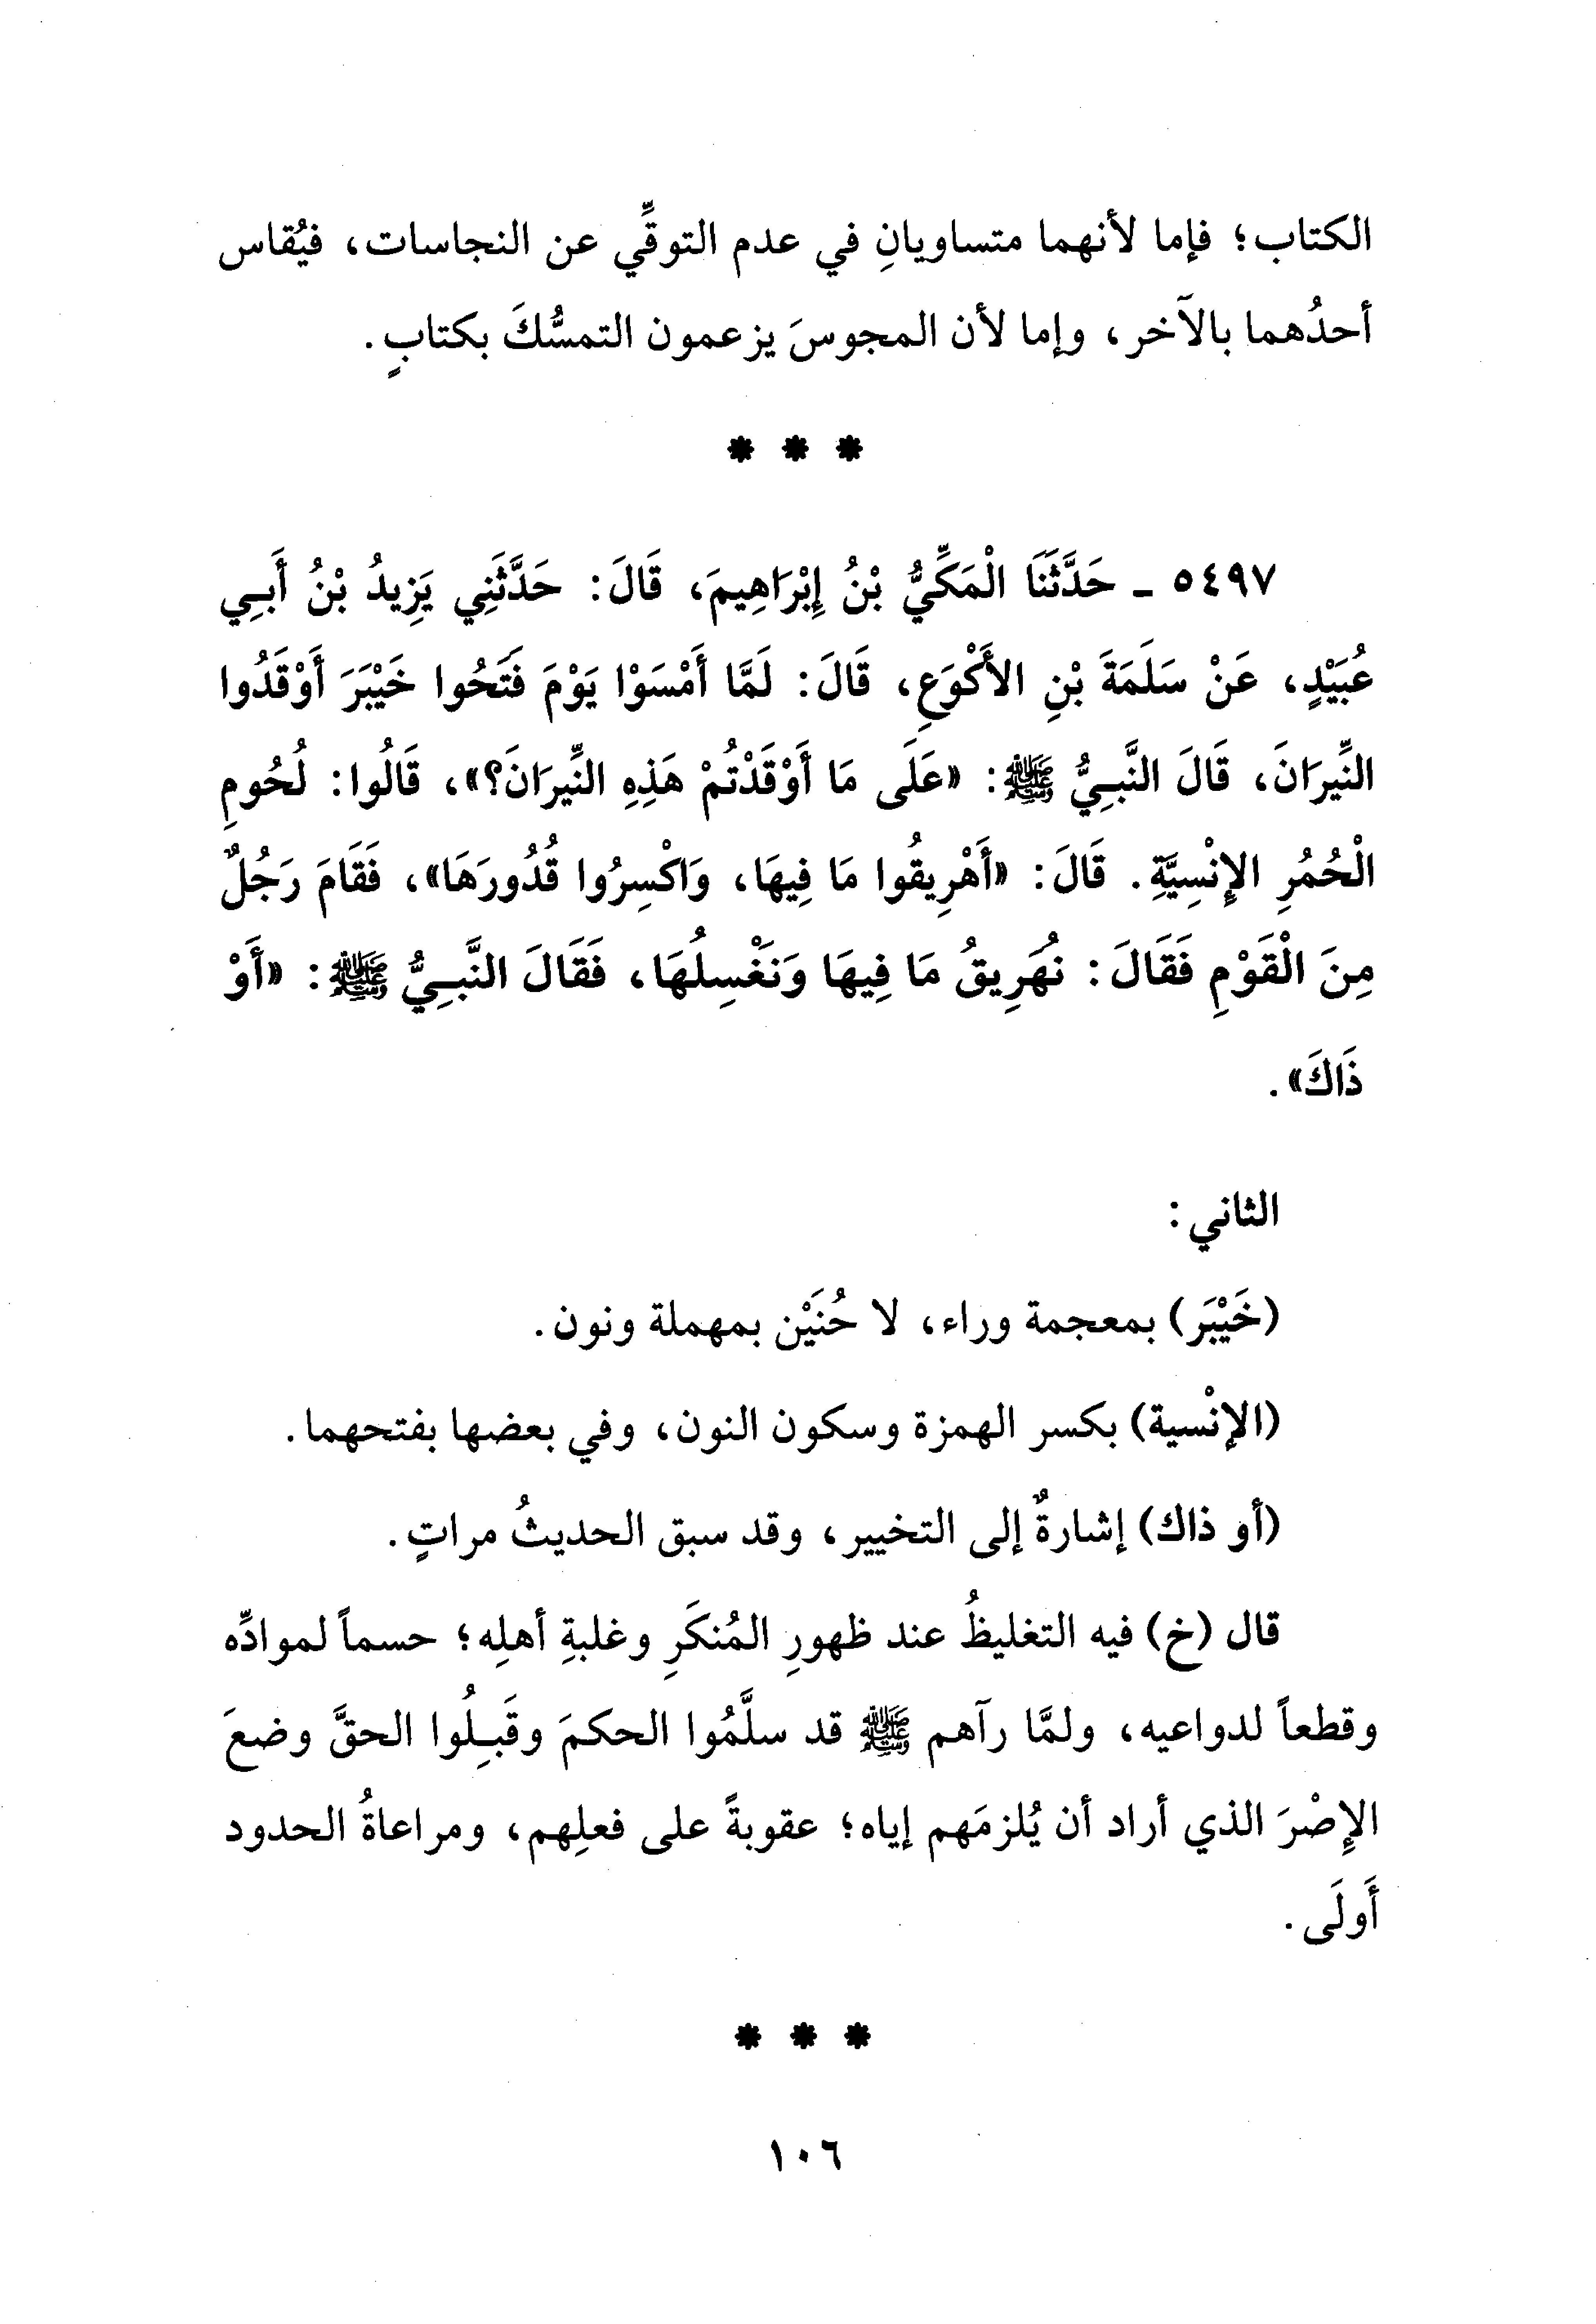 الكتاب؛ فإما لأنهما متساويانِ في عدم التوقِّي عن النجاسات، فيُقاس
أحدُهما بالآخر، وإما لأن المجوسَ يزعمون التمسُّكَ بكتابٍ.
* * *
٥٤٩٧ ـ حَدَّثَنَا الْمَكِّيُّ بْنُ إِبْرَاهِيمَ، قَالَ: حَدَّثَنِي يَزِيدُ بْنُ أَبِي
عُبَيْدٍ، عَنْ سَلَمَةَ بْنِ الأَكْوَعِ، قَالَ: لَمَّا أَمْسَوْا يَوْمَ فَتَحُوا خَيْبَرَ أَوْقَدُوا
النِّيرَانَ، قَالَ النَّبِيُّ ﷺ: «عَلَى مَا أَوْقَدْتُمْ هَذِهِ النِّيرَانَ؟»، قَالُوا: لُحُومِ
الْحُمُرِ الإِنْسِيَّةِ. قَالَ: «أَهْرِيقُوا مَا فِيهَا، وَاكْسِرُوا قُدُورَهَا»، فَقَامَ رَجُلٌ
مِنَ الْقَوْمِ فَقَالَ: نُهَرِيقُ مَا فِيهَا وَنَغْسِلُهَا، فَقَالَ النَّبِيُّ ﷺ: «أَوْ
ذَاكَ».
الثاني:
(خَيْبَر) بمعجمة وراء، لا حُنَيْن بمهملة ونون.
(الإنْسية) بكسر الهمزة وسكون النون، وفي بعضها بفتحهما.
(أو ذاك) إشارةٌ إلى التخيير، وقد سبق الحديثُ مراتٍ.
قال (خ) فيه التغليظُ عند ظهورِ المُنكَرِ وغلبةِ أهلِه؛ حسماً لموادِّه
وقطعاً لدواعيه، ولمَّا رآهم ﷺ قد سلَّمُوا الحكمَ وقَبِلُوا الحقَّ وضعَ
الإِصْرَ الذي أراد أن يُلزمَهم إياه؛ عقوبةً على فعلِهم، ومراعاةُ الحدود
أَولَى.
* * *
١٠٦